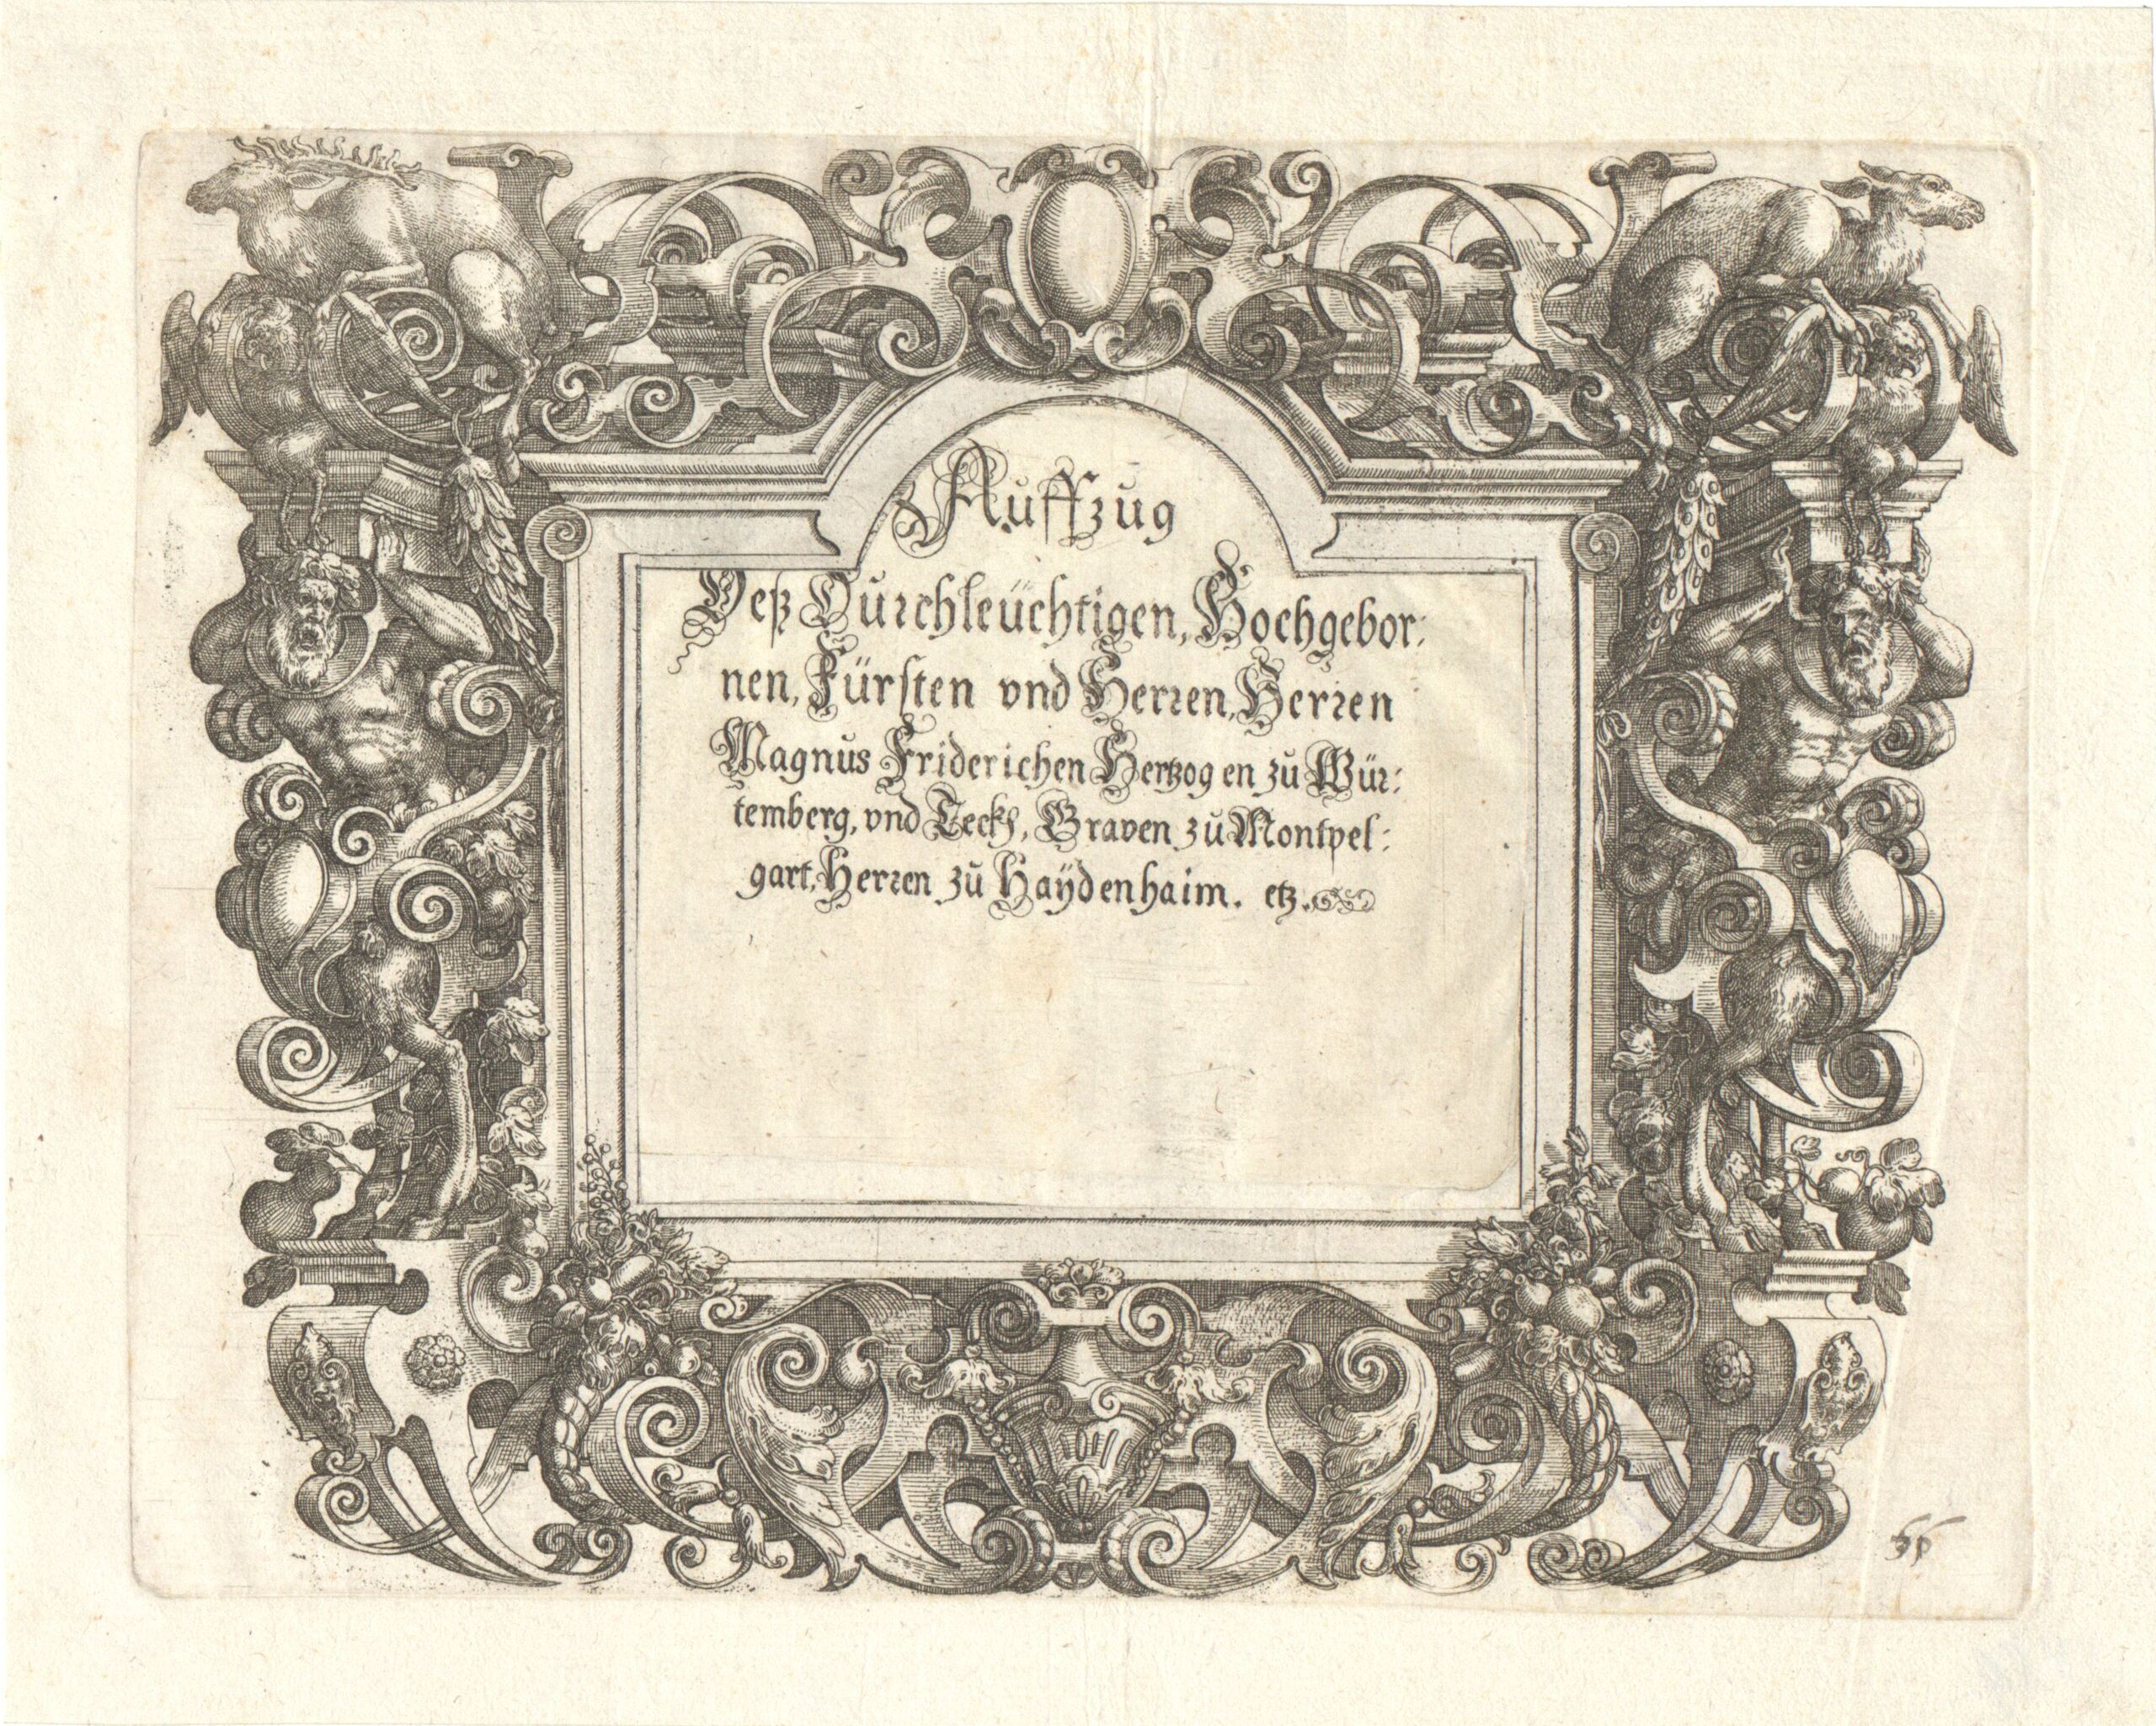 Auffzug
Deß Durchleüchtigen, Hochgebor:
nen, Fürsten vnd Herren, Herren
Magnus Friderichen Hertzogen zů Wür:
temberg, vnd Teckh, Graven zů Montpel:
gart, Herren zů Haÿdenhaim. etz.